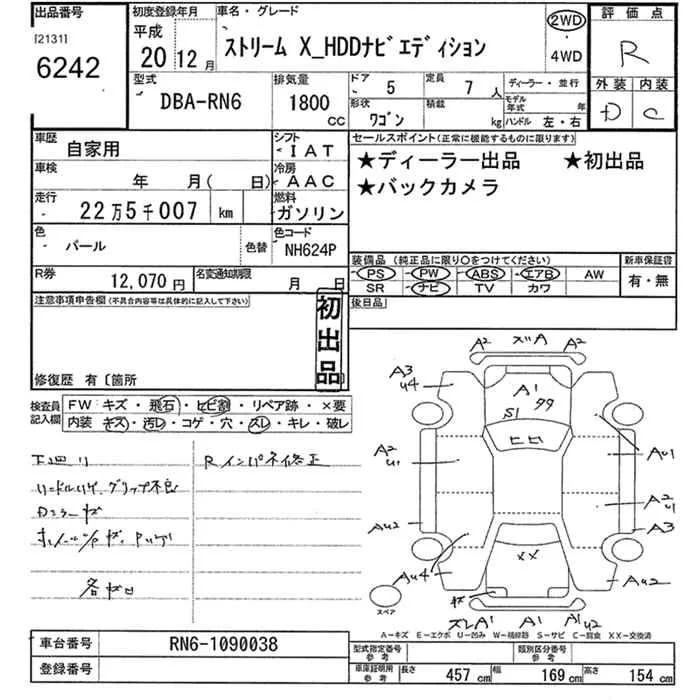 出品番号
[2131]
6242
初度登録年月
平成
20 12 月
車名・グレード
ストリーム X_HDDナビエディション
2WD
4WD
評価点
R
外装 内装
D C
型式
DBA-RN6
排気量
1800 CC
ドア 5
定員 7 人
ディーラー・並行
形状 ワゴン
積載 kg
モデル年式 年
ハンドル 左・右
車歴 自家用
シフト IAT
車検 年 月( 日)
冷房 AAC
走行 22万5千007 km
燃料 ガソリン
色 パール 色替
色コード NH624P
R券 12,070円
名変通知期限 月 日
セールスポイント(正常に機能するものに限ります)
★ディーラー出品 ★初出品
★バックカメラ
装備品 (純正品に限り〇をつけてください)
新車保証書
PS PW ABS エアB AW
SR ナビ TV カワ
有・無
後日品
注意事項申告欄(不具合内容等は具体的に記入して下さい)
初出品
修復歴 有〔箇所
検査員記入欄
FW キズ・飛石・ヒビ割・リペア跡・×要
内装 キズ・汚レ・コゲ・穴・スレ・キレ・破レ
下廻り
Rインパネ修正
グリップ不良
Dミラーキズ
各キズ凹
A2 ズレA A2
A3
U4
A1
S1 99
ヒビ
A2
U1
AU1
A2
U1
AU2
A3
××
AU4
AU2
キズ
ズレA1 A1 A1
U2
スペア
A-キズ E-エクボ U-凹み W-補修跡 S-サビ C-腐食 XX-交換済
車台番号 RN6-1090038
登録番号
型式指定番号 参考
類別区分番号 参考
車庫証明用 参考
長さ 457 cm 幅 169 cm 高さ 154 cm